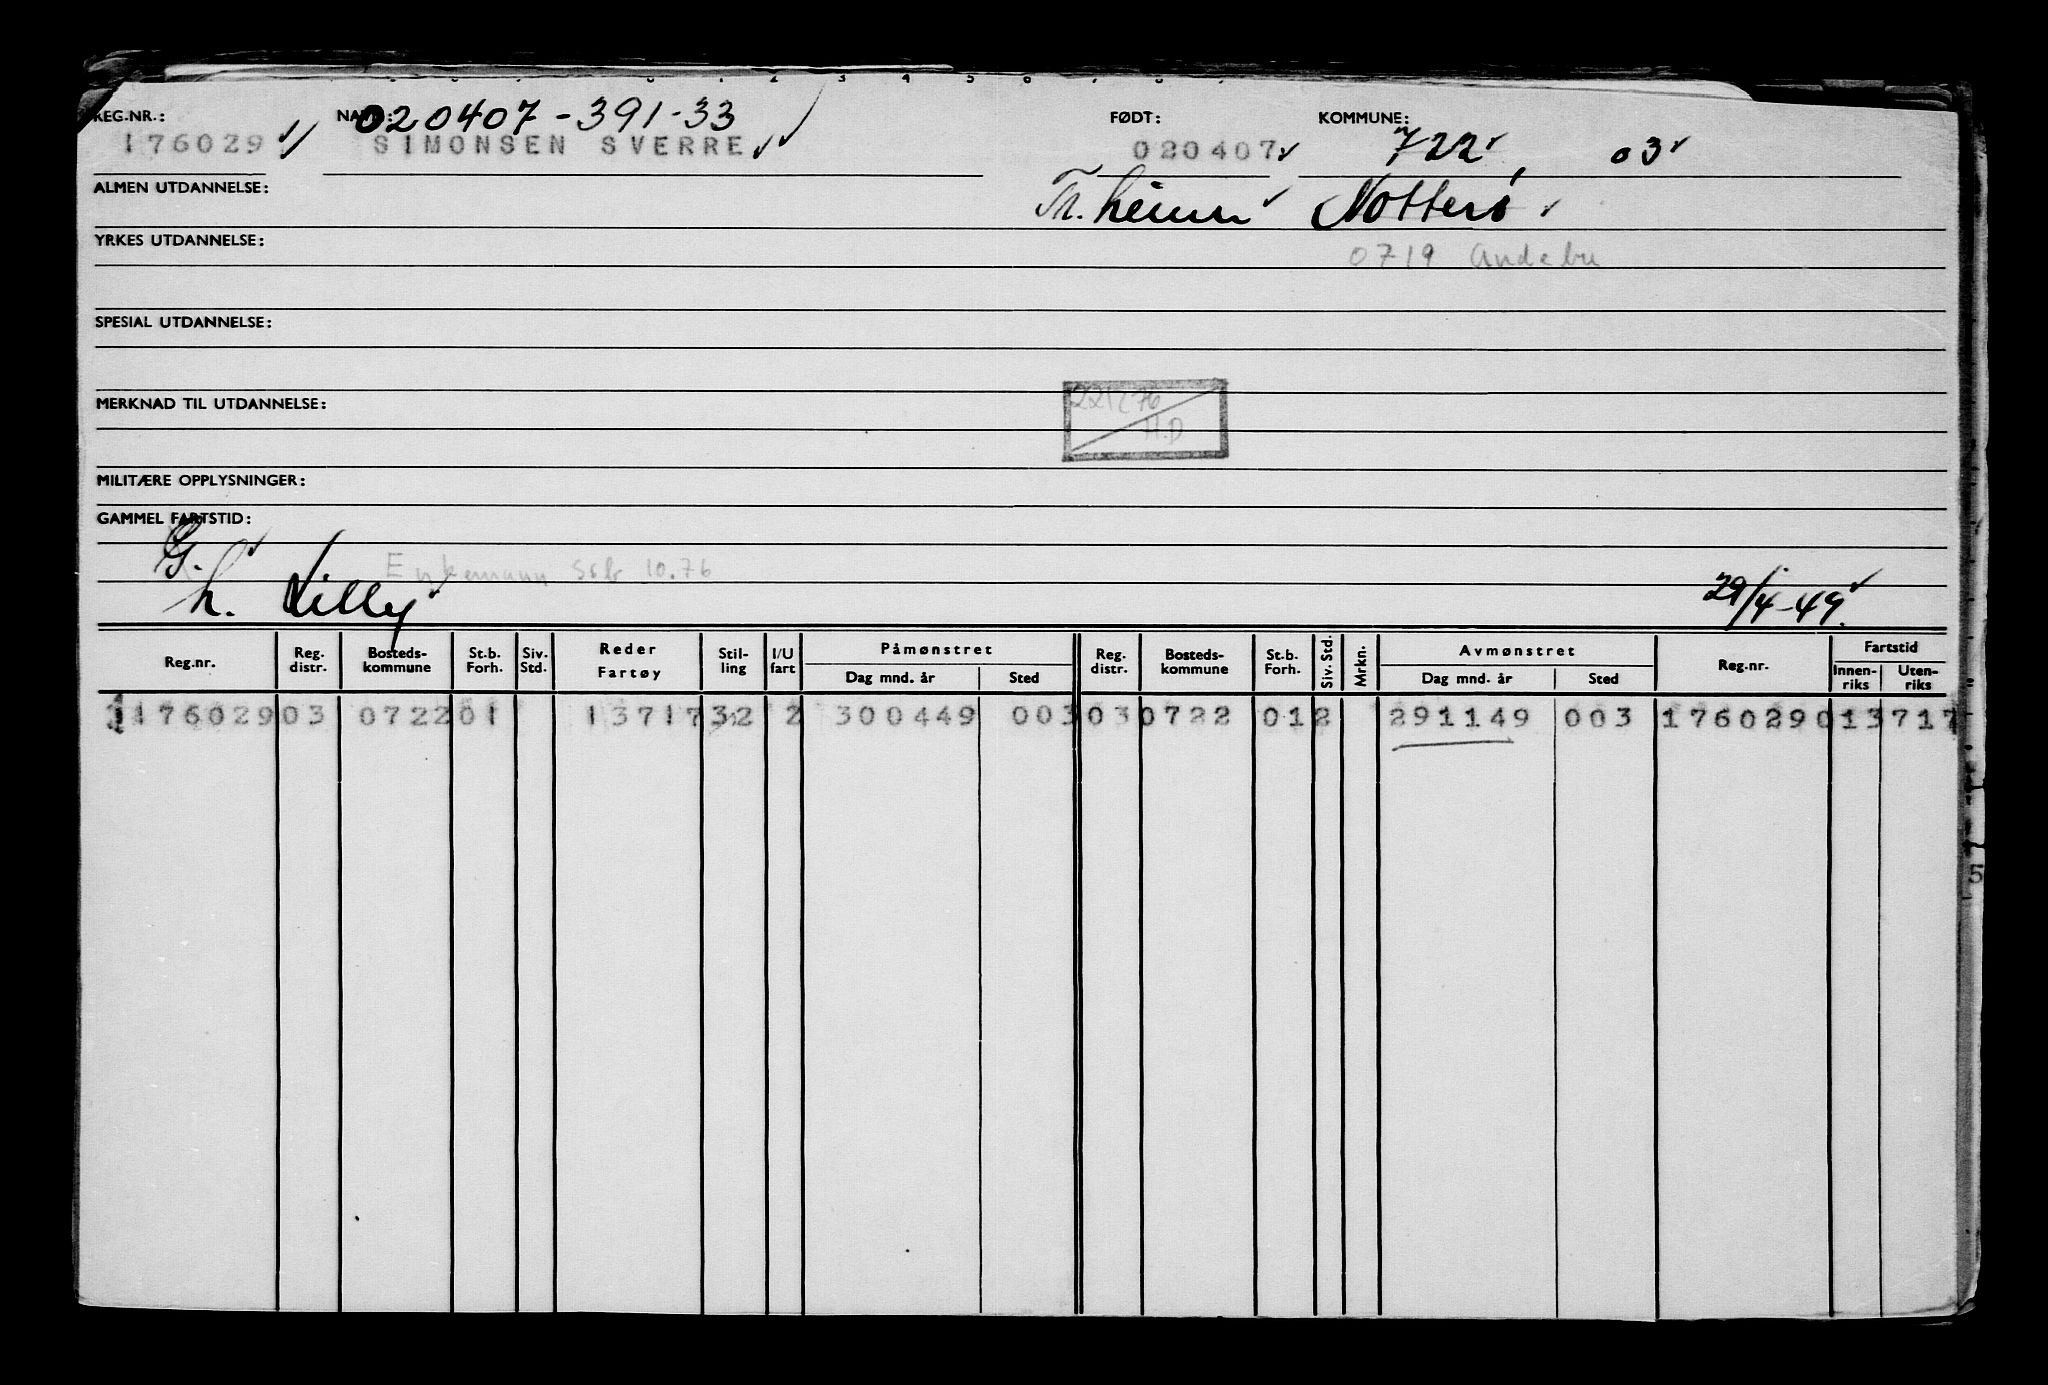 REG.NR.: NAVN: 020407-391-33 FØDT: KOMMUNE:
176029 SIMONSEN SVERRE 020407 722, 03
ALMEN UTDANNELSE: Nøtterø
YRKES UTDANNELSE:
0719 Andebu
SPESIAL UTDANNELSE:
MERKNAD TIL UTDANNELSE:
H.D
MILITÆRE OPPLYSNINGER:
GAMMEL FARTSTID:
G.
h. Lilly 10.76 29/4-49.
Reg.nr. Reg. distr. Bosteds-kommune St.b. Forh. Siv. Std. Reder Fartøy Stil-ling I/U fart Påmønstret Dag mnd. år Sted Reg. distr. Bosteds-kommune St.b. Forh. Siv. Std. Mrkn. Avmønstret Dag mnd. år Sted Reg.nr. Fartstid Innen-riks Uten-riks
176029 03 0722 01 13717 32 2 300449 003 03 0722 01 2 291149 003 176029 0 13 717
5